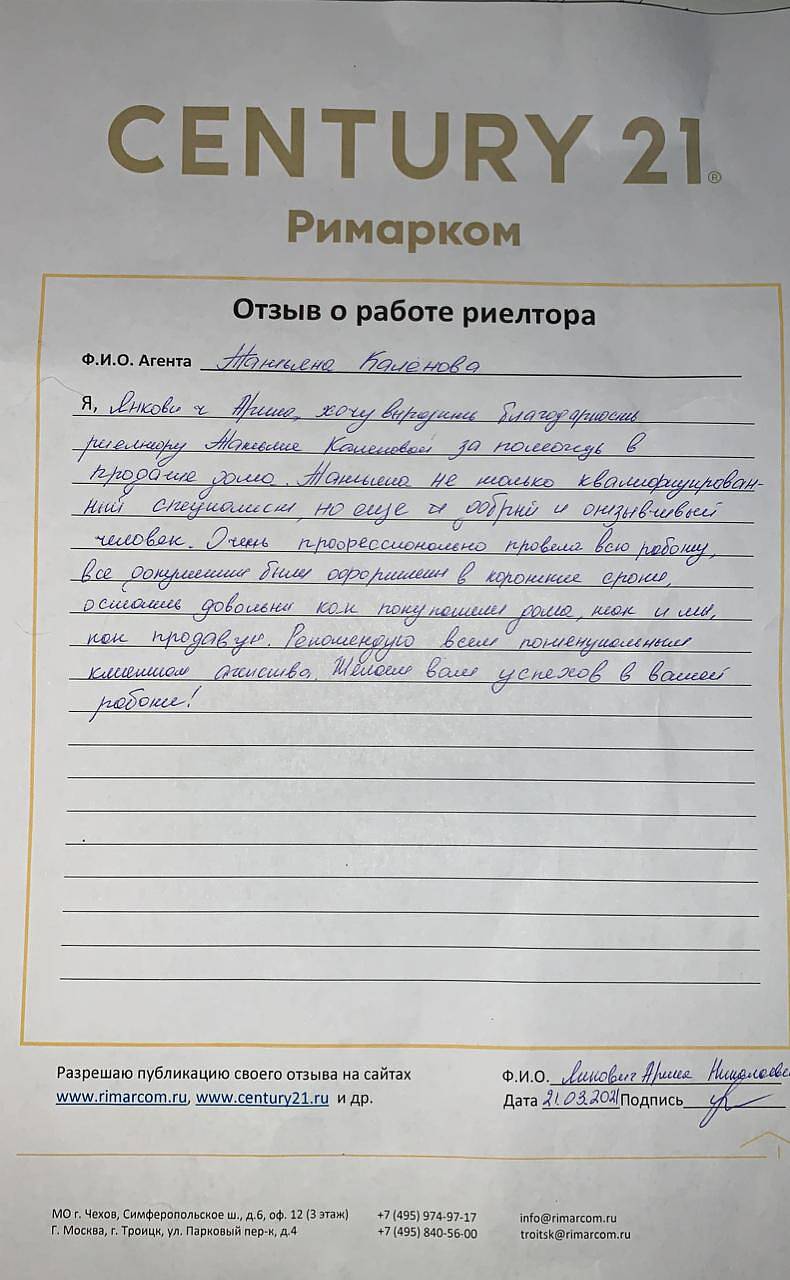 CENTURY 21®
Римарком
Отзыв о работе риелтора
Ф.И.О. Агента Татьяна Каленова
Я, Янкович Арина, хочу выразить благодарность
риелтору Татьяне Каленовой за помощь в
продаже дома. Татьяна не только квалифицирован-
ный специалист, но еще и добрый и отзывчивый
человек. Очень профессионально провела всю работу,
все документы были оформлены в короткие сроки,
остались довольны как покупатели дома, так и мы,
как продавцы. Рекомендую всем потенциальным
клиентам агенства. Желаем вам успехов в вашей
работе!
Разрешаю публикацию своего отзыва на сайтах
www.rimarcom.ru, www.century21.ru и др.
Ф.И.О. Янкович Арина Николаевна
Дата 21.03.2021 Подпись
МО г. Чехов, Симферопольское ш., д.6, оф. 12 (3 этаж) +7 (495) 974-97-17 info@rimarcom.ru
Г. Москва, г. Троицк, ул. Парковый пер-к, д.4 +7 (495) 840-56-00 troitsk@rimarcom.ru